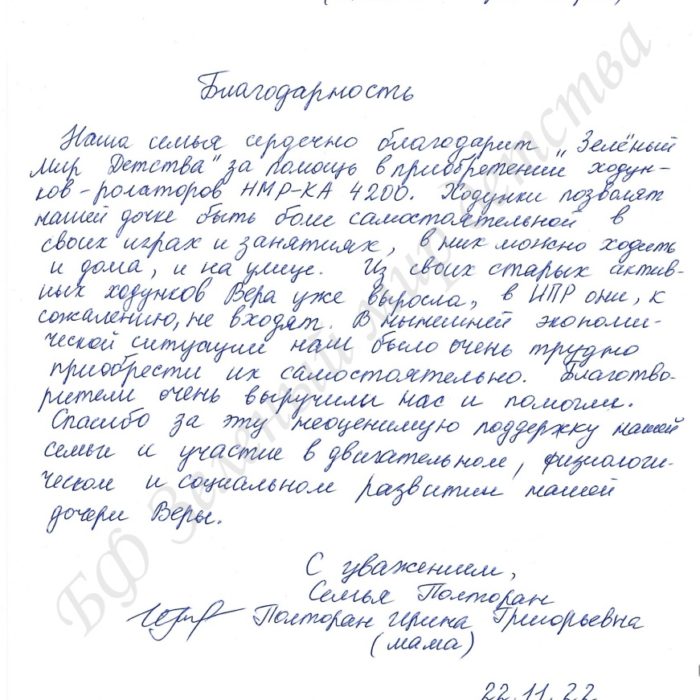 Благодарность
Наша семья сердечно благодарит „Зелёный
Мир Детства" за помощь в приобретении ходун-
ков-ролаторов HMP-KA 4200. Ходунки позволят
нашей дочке быть более самостоятельной в
своих играх и занятиях, в них можно ходить
и дома, и на улице. Из своих старых актив-
ных ходунков Вера уже выросла, в ИПР они, к
сожалению, не входят. В нынешней экономи-
ческой ситуации нам было очень трудно
приобрести их самостоятельно. Благотво-
рители очень выручили нас и помогли.
Спасибо за эту неоценимую поддержку нашей
семьи и участие в двигательном, физиологи-
ческом и социальном развитии нашей
дочери Веры.
С уважением,
Семья Полторан
Полторан Ирина Григорьевна
(мама)
22.11.22
БФ Зеленый мир детства